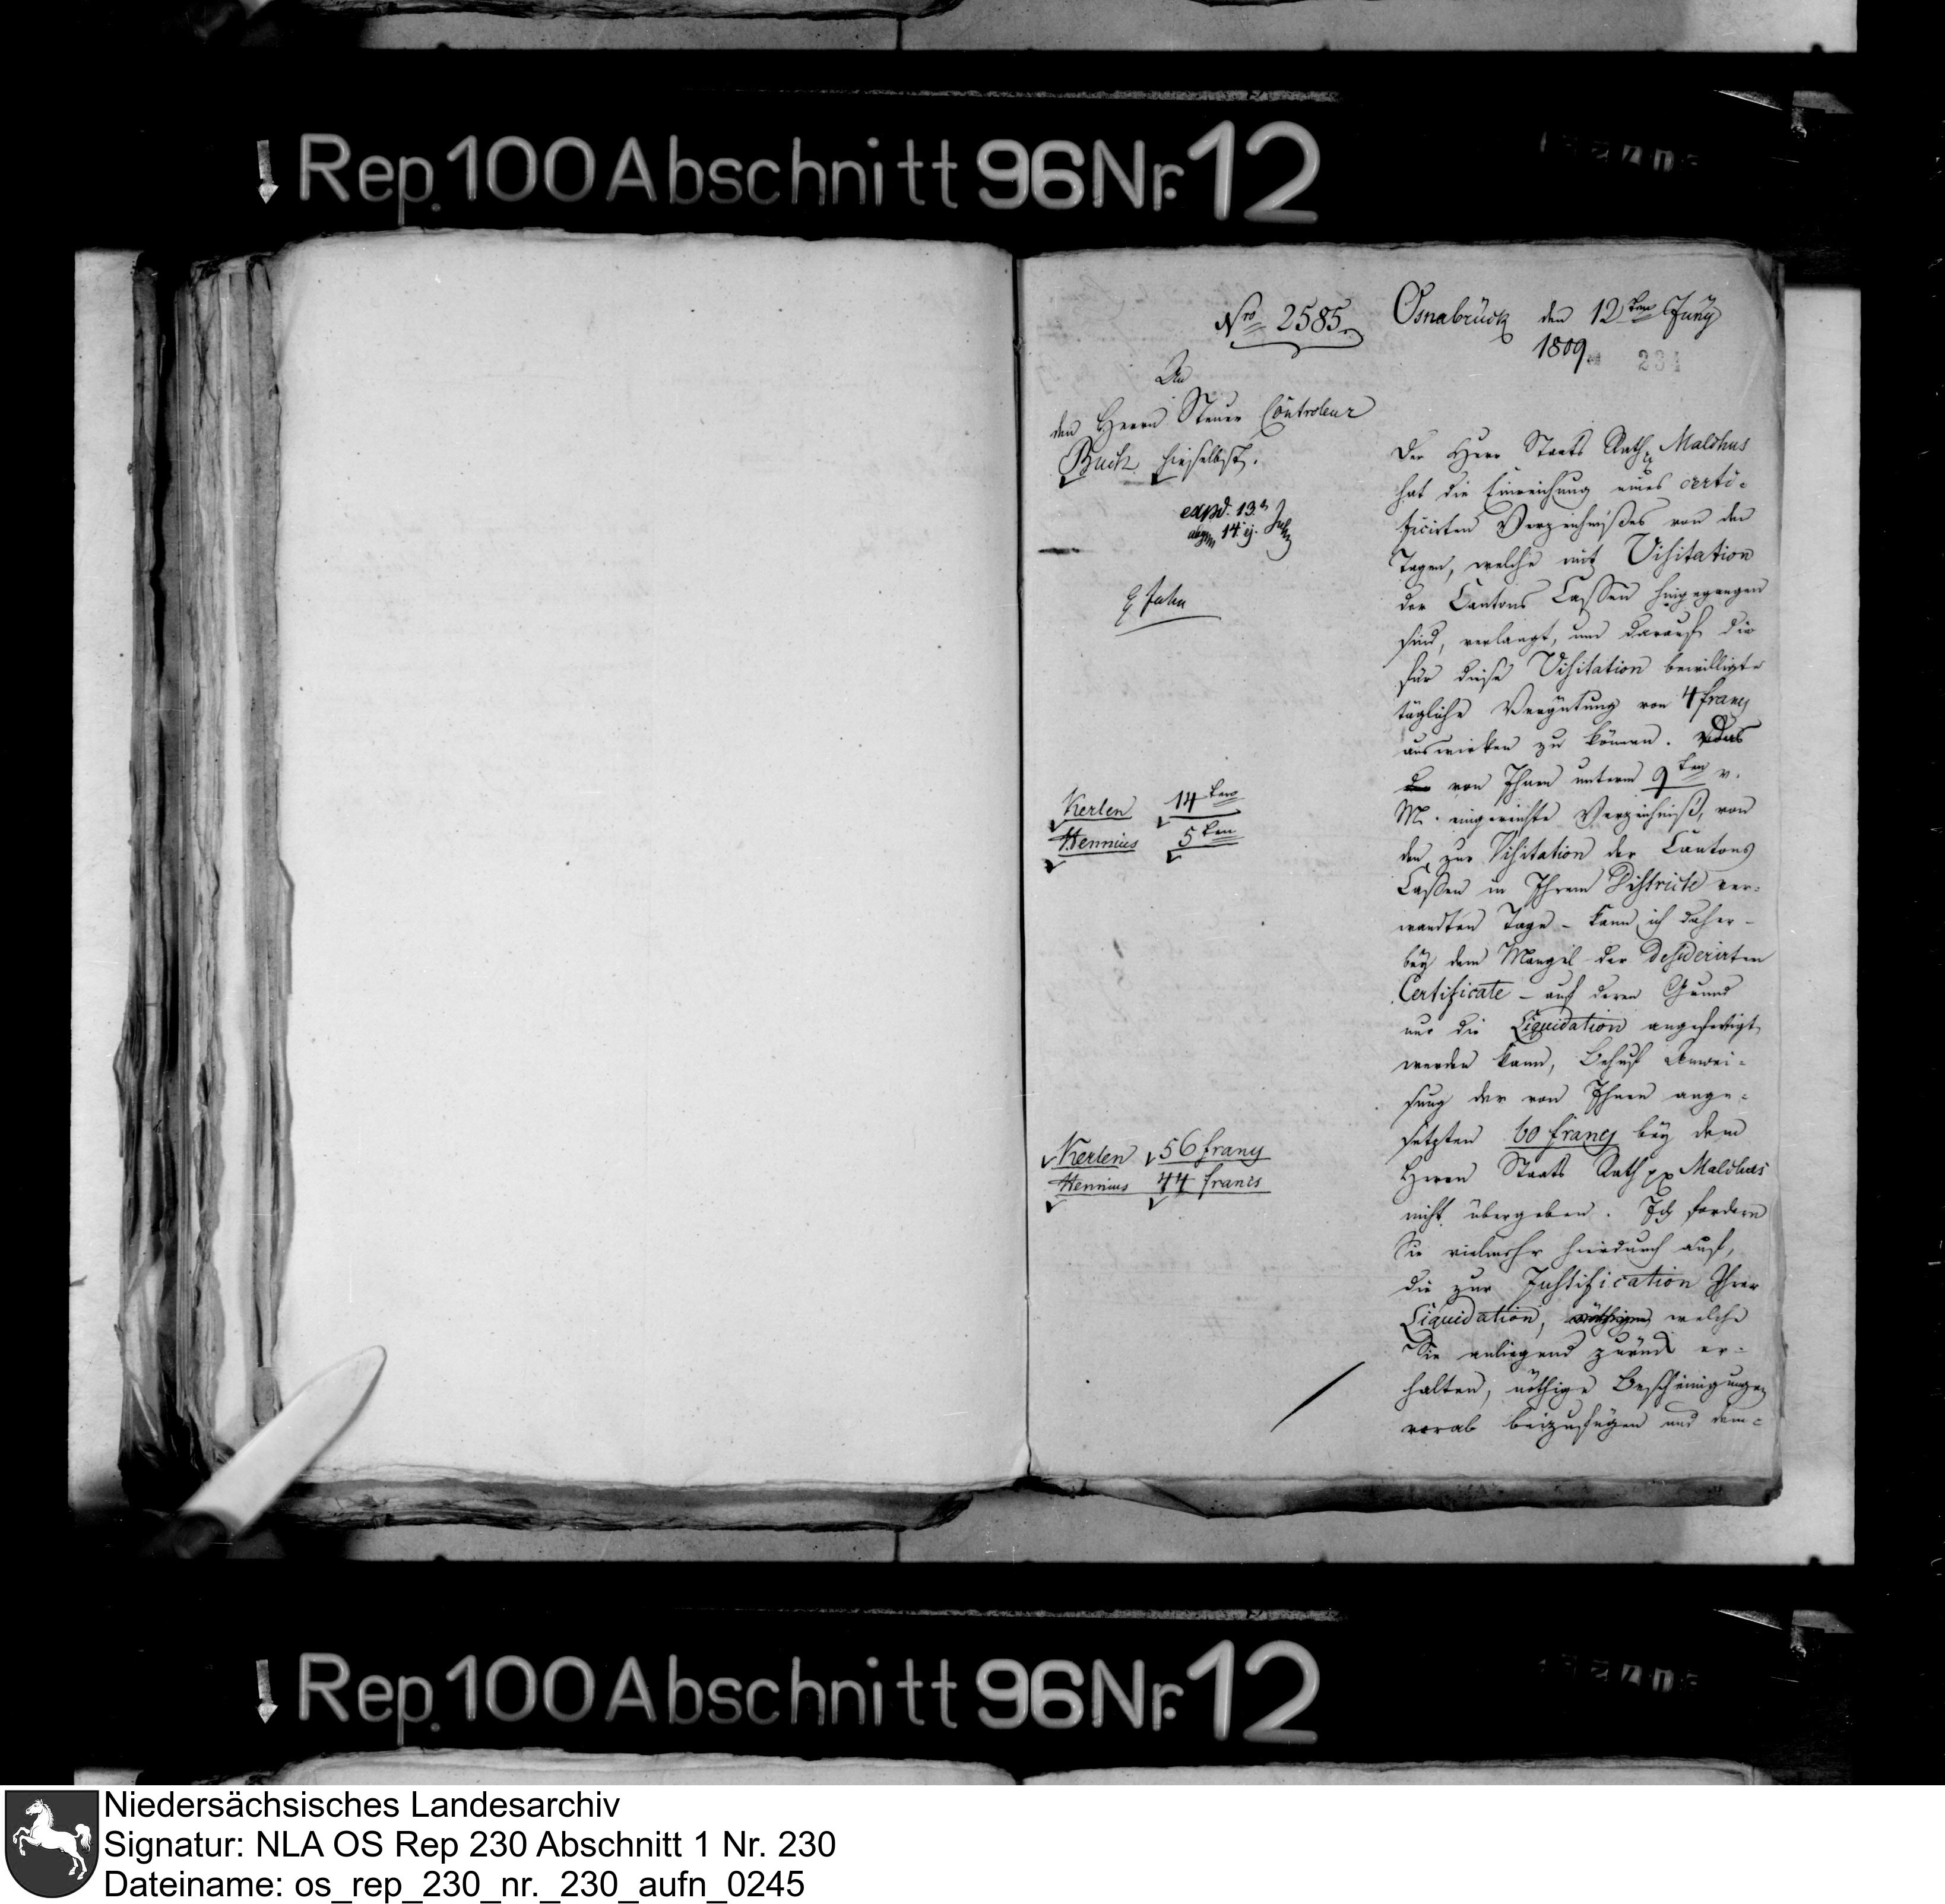 Rep. 100 Abschnitt 96 Nr. 12
Nro 2585.
Osnabrück den 12ten Juny
1809.
234
An
den Herrn Steuer Controleur
Buch hieselbst.
expd. 13.
14
Kerlen 14ten
Hennius 5ten
Kerlen 56 francs
Hennius 44 francs
Der Herr Staats Rath Malchus
hat die Einreichung eines certi-
ficirten Verzeichnißes von den
Tagen, welche mit Visitation
der Cantons Cassen hingegangen
sind, verlangt, um darauf die
für diese Visitation bewilligte
tägliche Vergütung von 4 francs
auswirken zu können. Das
von Ihnen unterm 9ten v.
M. eingereichte Verzeichniß, von
den zur Visitation der Cantons
Cassen in Ihrem Districte ver-
wandten Tage – kann ich daher –
bey dem Mangel der desiderirten
Certificate – auf deren Grund
nur die Liquidation angefertigt
werden kann, Behuf Anwei-
sung der von Ihnen ange-
setzten 60 francs bey dem
Herrn Staats Rath Malchus
nicht übergeben. Ich fordere
Sie vielmehr hierdurch auf,
die zur Justification Ihrer
Liquidation, welche
Sie anliegend zurück er-
halten, nöthige Bescheinigungen
vorab beizufügen und dem-
Rep. 100 Abschnitt 96 Nr. 12
Niedersächsisches Landesarchiv
Signatur: NLA OS Rep 230 Abschnitt 1 Nr. 230
Dateiname: os_rep_230_nr._230_aufn_0245